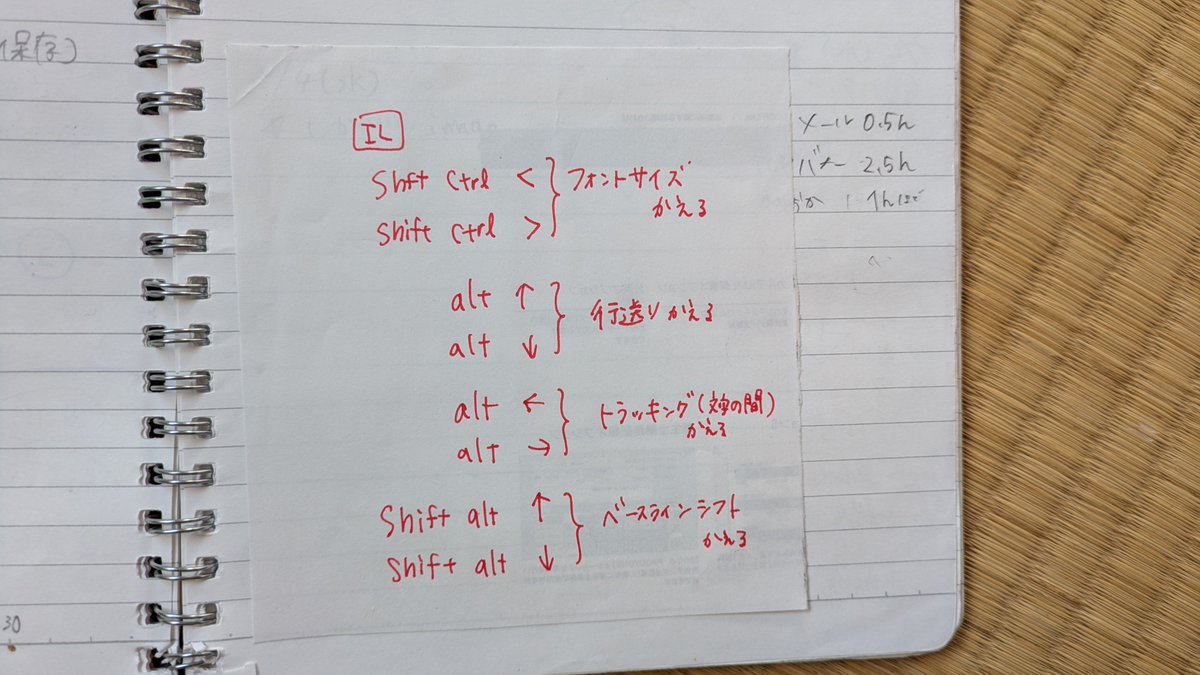 保存)
IL
Shft Ctrl <
フォントサイズ
かえる
Shift Ctrl >
alt ↑
行送りかえる
alt ↓
alt ←
トラッキング(文字の間)
かえる
alt →
Shift alt ↑
ベースラインシフト
かえる
Shift alt ↓
メール 0.5h
バナー 2.5h
30